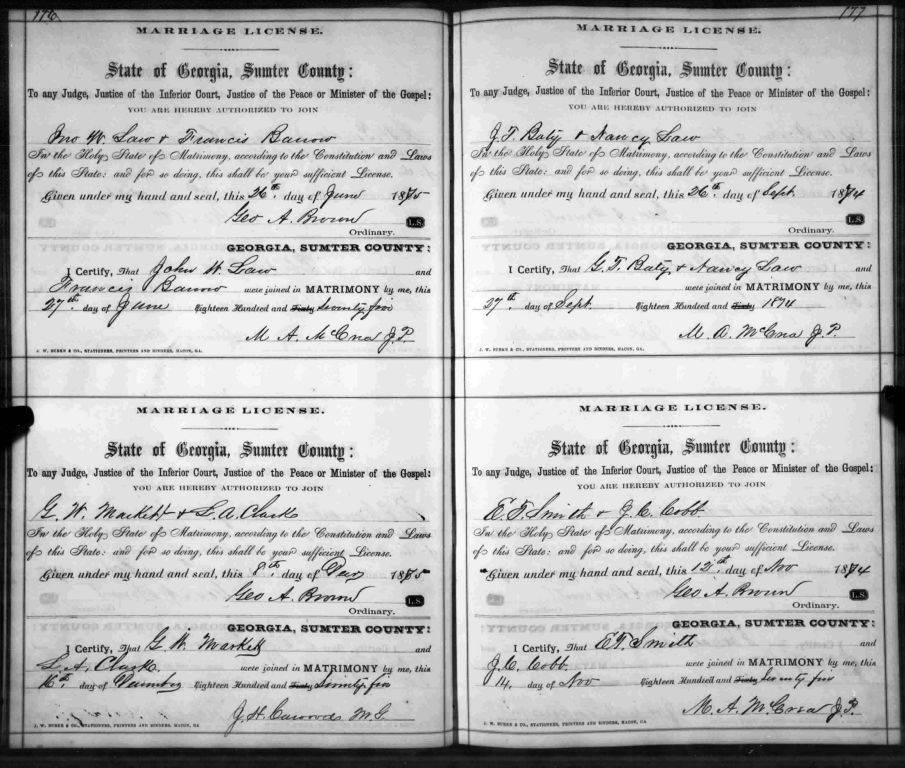 176
MARRIAGE LICENSE.
State of Georgia, Sumter County:
To any Judge, Justice of the Inferior Court, Justice of the Peace or Minister of the Gospel:
YOU ARE HEREBY AUTHORIZED TO JOIN
Jno W. Law & Francis Barrow
In the Holy State of Matrimony, according to the Constitution and Laws
of this State: and for so doing, this shall be your sufficient License.
Given under my hand and seal, this 26th day of June 1875
Geo A. Brown L.S.
Ordinary.
GEORGIA, SUMTER COUNTY:
I Certify, That John W. Law and
Francis Barrow were joined in MATRIMONY by me, this
27th day of June Eighteen Hundred and Sixty Seventy five
M. A. McCrea J.P.
J. W. BURKE & CO., STATIONERS, PRINTERS AND BINDERS, MACON, GA.
MARRIAGE LICENSE.
State of Georgia, Sumter County:
To any Judge, Justice of the Inferior Court, Justice of the Peace or Minister of the Gospel:
YOU ARE HEREBY AUTHORIZED TO JOIN
G. W. Markett & L. A. Clark
In the Holy State of Matrimony, according to the Constitution and Laws
of this State: and for so doing, this shall be your sufficient License.
Given under my hand and seal, this 8th day of 1875
Geo A. Brown L.S.
Ordinary.
GEORGIA, SUMTER COUNTY:
I Certify, That G. W. Markett and
L. A. Clark were joined in MATRIMONY by me, this
16th day of Eighteen Hundred and Sixty Seventy five
J. H. M.G.
J. W. BURKE & CO., STATIONERS, PRINTERS AND BINDERS, MACON, GA.
177
MARRIAGE LICENSE.
State of Georgia, Sumter County:
To any Judge, Justice of the Inferior Court, Justice of the Peace or Minister of the Gospel:
YOU ARE HEREBY AUTHORIZED TO JOIN
J. T. Baty & Nancy Law
In the Holy State of Matrimony, according to the Constitution and Laws
of this State: and for so doing, this shall be your sufficient License.
Given under my hand and seal, this 26th day of Sept. 1874
L.S.
Ordinary.
GEORGIA, SUMTER COUNTY:
I Certify, That G. T. Baty & Nancy Law and
were joined in MATRIMONY by me, this
27th day of Sept. Eighteen Hundred and Sixty 1874
M. A. McCrea J.P.
J. W. BURKE & CO., STATIONERS, PRINTERS AND BINDERS, MACON, GA.
MARRIAGE LICENSE.
State of Georgia, Sumter County:
To any Judge, Justice of the Inferior Court, Justice of the Peace or Minister of the Gospel:
YOU ARE HEREBY AUTHORIZED TO JOIN
E. T. Smith & J. C. Cobb
In the Holy State of Matrimony, according to the Constitution and Laws
of this State: and for so doing, this shall be your sufficient License.
Given under my hand and seal, this 12th day of Nov 1874
Geo A. Brown L.S.
Ordinary.
GEORGIA, SUMTER COUNTY:
I Certify, That E. T. Smith and
J. C. Cobb. were joined in MATRIMONY by me, this
14. day of Nov Eighteen Hundred and Sixty Seventy five
M. A. McCrea J.P.
J. W. BURKE & CO., STATIONERS, PRINTERS AND BINDERS, MACON, GA